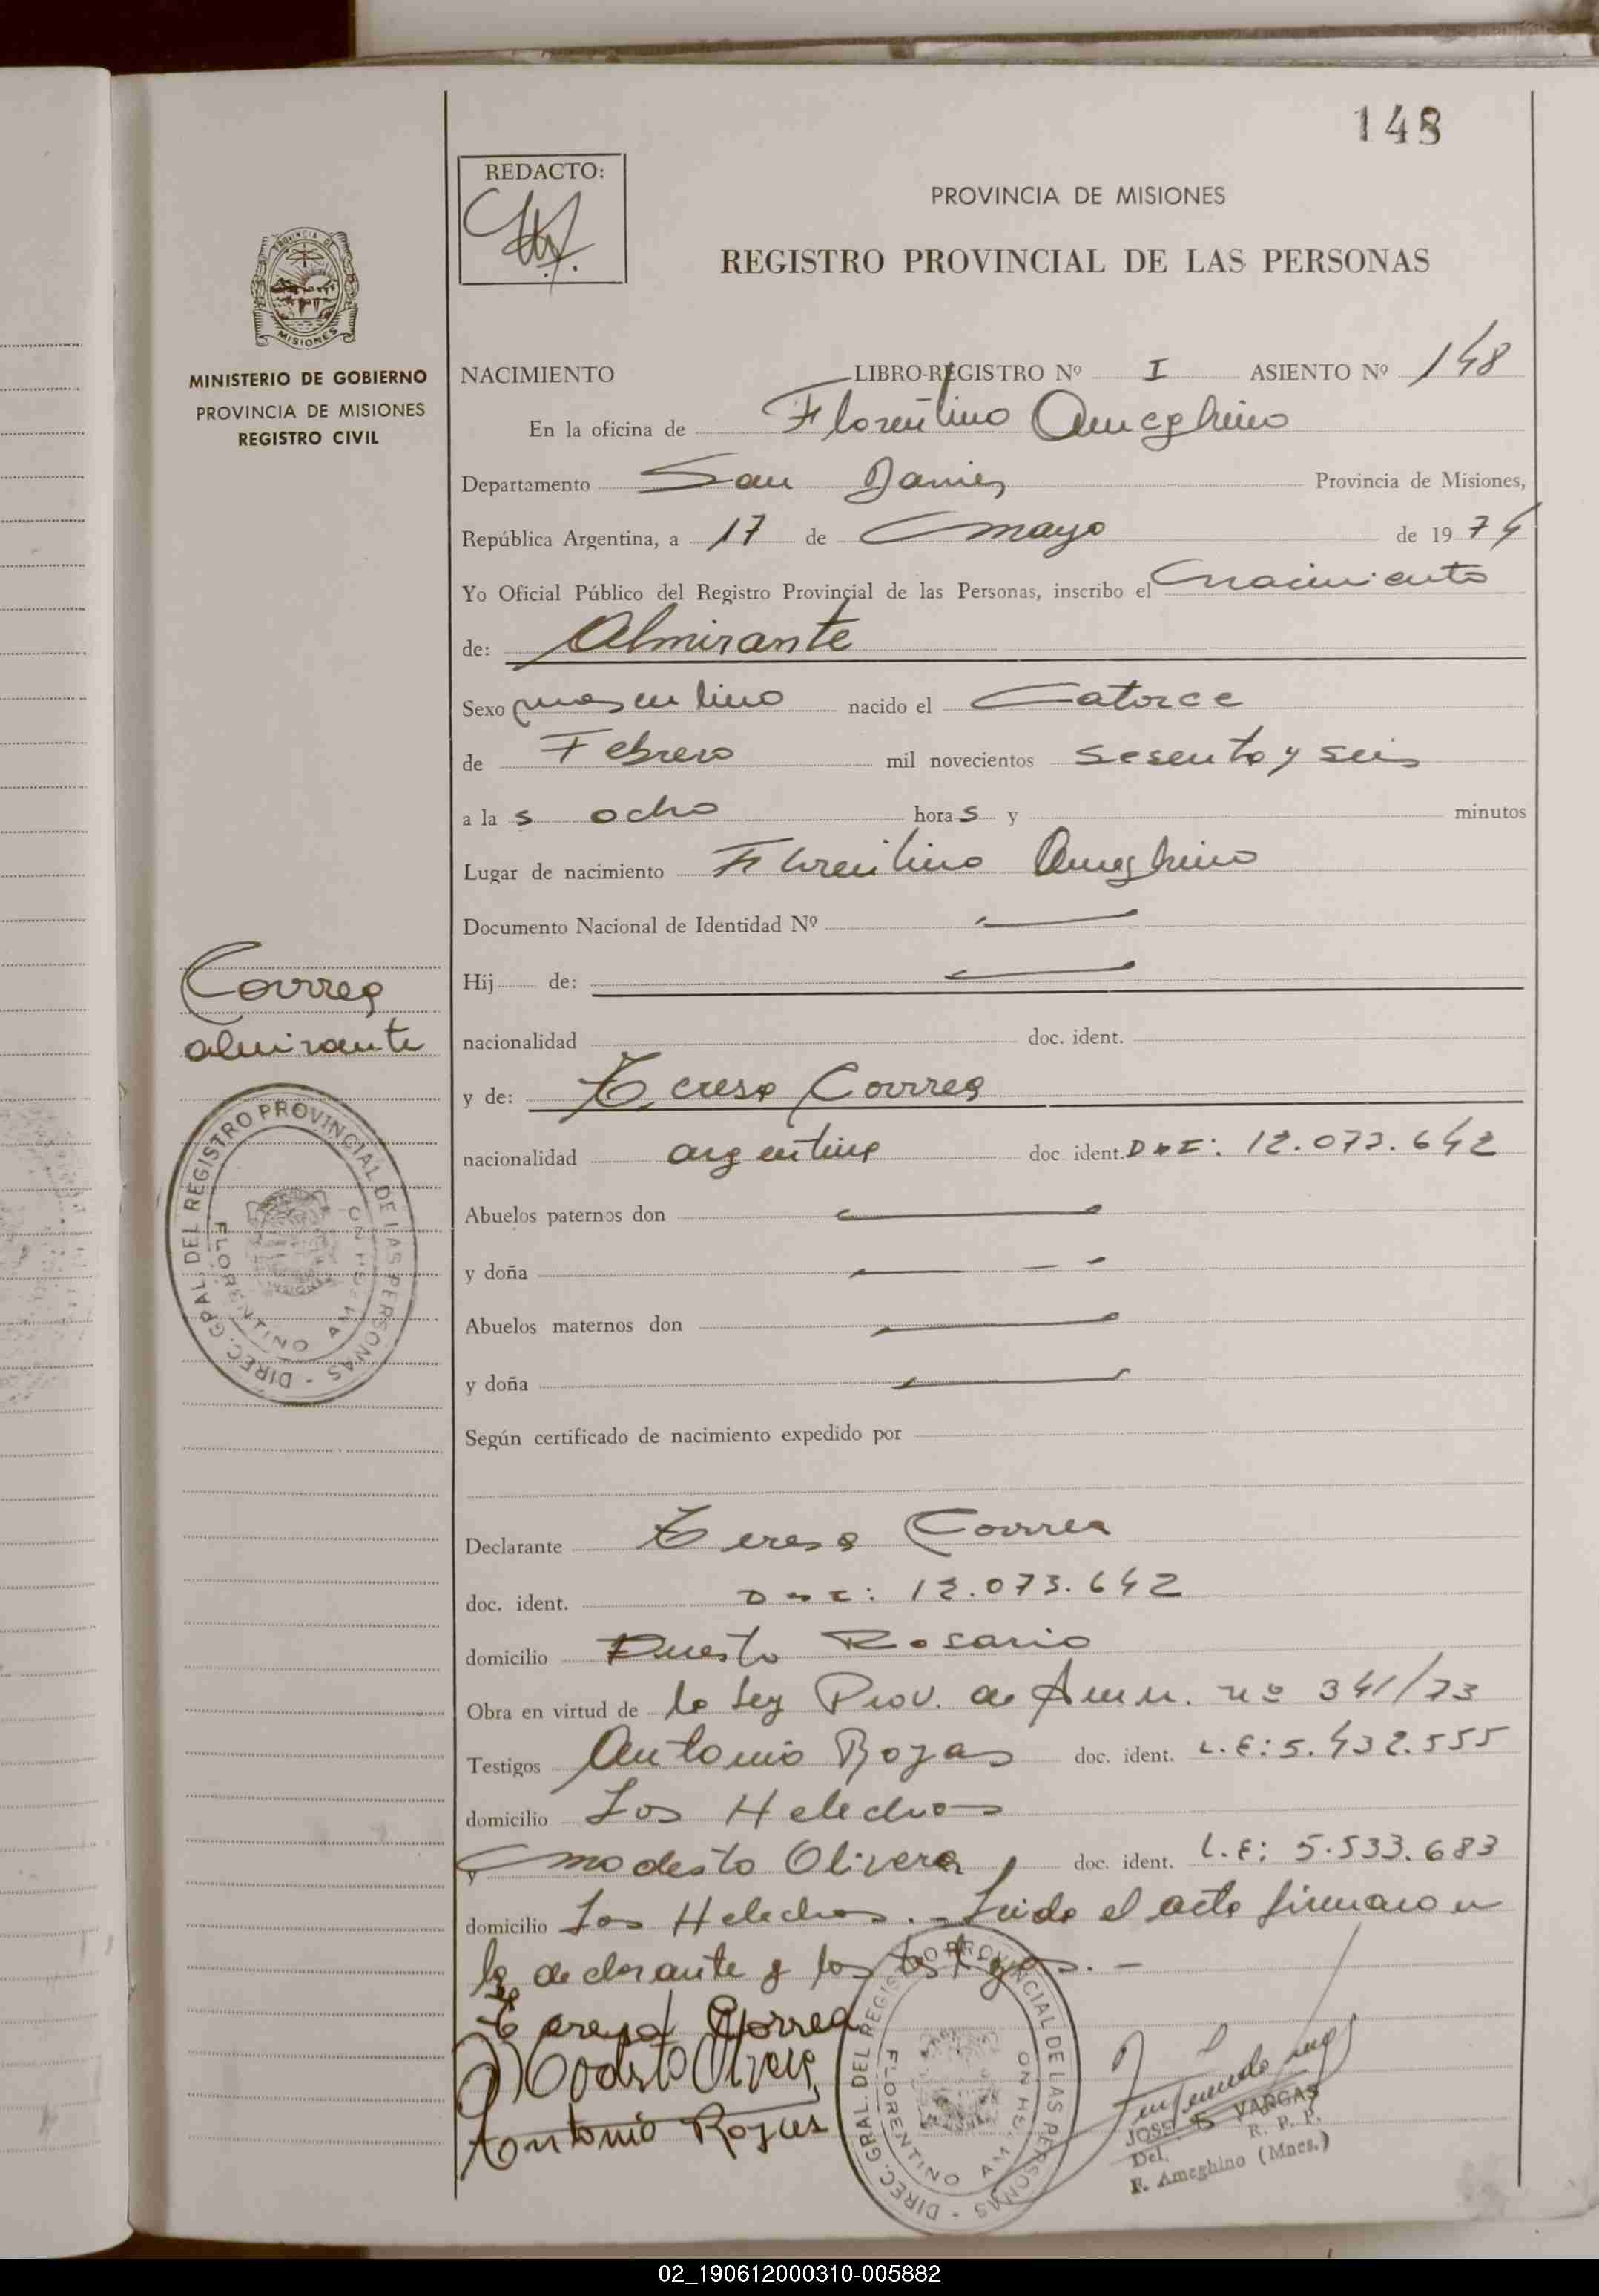 148
REDACTO:
PROVINCIA DE MISIONES
REGISTRO PROVINCIAL DE LAS PERSONAS
PROVINCIA DE
MISIONES
MINISTERIO DE GOBIERNO
PROVINCIA DE MISIONES
REGISTRO CIVIL
NACIMIENTO LIBRO-REGISTRO Nº I ASIENTO Nº 148
En la oficina de Florentino Ameghino
Departamento San Javier Provincia de Misiones,
República Argentina, a 17 de mayo de 1974
Yo Oficial Público del Registro Provincial de las Personas, inscribo el nacimiento
de: Almirante
Sexo masculino nacido el Catorce
de Febrero mil novecientos sesenta y seis
a las ocho horas y minutos
Lugar de nacimiento Florentino Ameghino
Documento Nacional de Identidad Nº —
Hij de: —
nacionalidad doc. ident.
Correa
almirante
y de: Teresa Correa
nacionalidad argentina doc ident. DNI: 12.073.642
Abuelos paternos don —
y doña —
Abuelos maternos don —
y doña —
DIREC. GRAL. DEL REGISTRO PROVINCIAL DE LAS PERSONAS -
FLORENTINO AMEGHINO
Según certificado de nacimiento expedido por
Declarante Teresa Correa
doc. ident. DNI: 12.073.642
domicilio Puesto Rosario
Obra en virtud de la Ley Prov. de Amn. nº 341/73
Testigos Antonio Rojas doc. ident. L.E: 5.432.555
domicilio Los Helechos
y modesto Olivera, doc. ident. L.E: 5.533.683
domicilio Los Helechos. - Leida el acta firmaron
la declarante y los testigos. -
Teresa Correa
Modesto Olivera
Antonio Rojas
DIREC. GRAL. DEL REGISTRO PROVINCIAL DE LAS PERSONAS -
FLORENTINO AMEGHINO
JOSE S VARGAS
Del. R. P. P.
F. Ameghino (Mnes.)
02_190612000310-005882